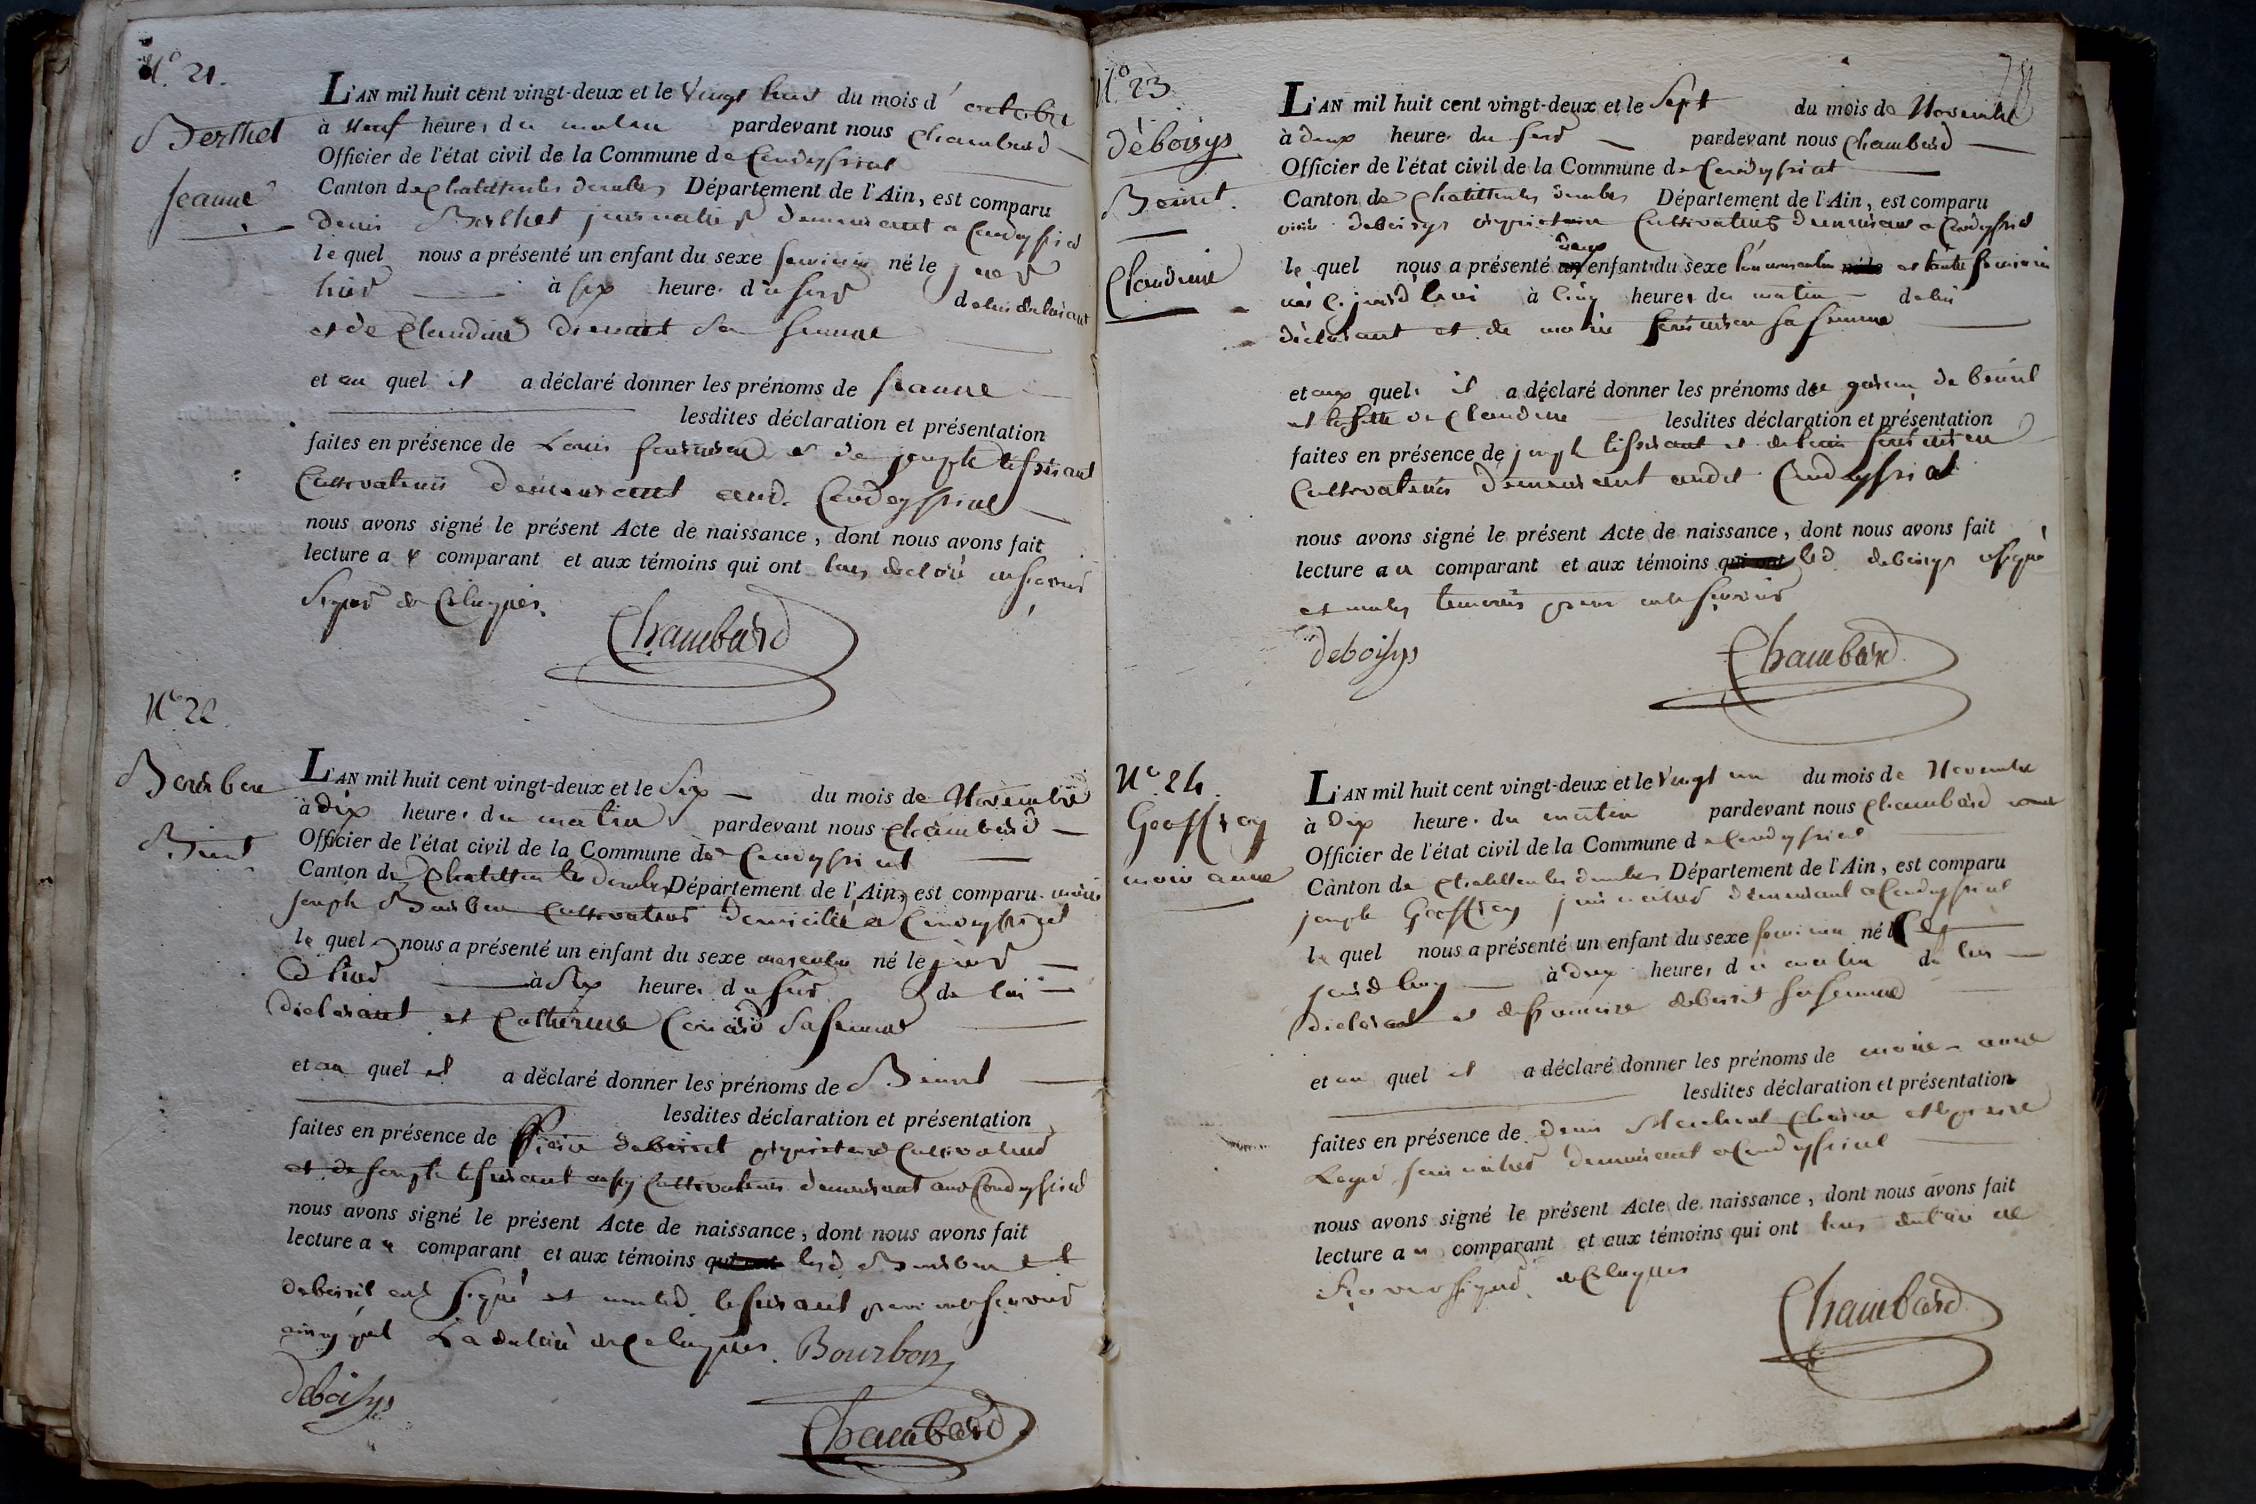 N° 21.
Berthet
Jeanne
L'AN mil huit cent vingt-deux et le vingt huit du mois d'octobre
à neuf heures du matin pardevant nous Chambard
Officier de l'état civil de la Commune de Condeyssiat
Canton de Chatillon les dombes Département de l'Ain, est comparu
denis Berthet journalier demeurant a Condeyssiat
le quel nous a présenté un enfant du sexe feminin né le jour d
hier à six heures du soir de lui declarant
et de Claudine sa femme
et au quel il a déclaré donner les prénoms de jeanne
lesdites déclaration et présentation
faites en présence de Louis et de joseph tisserant
Cultivateurs demeurant aud. Condeyssiat
nous avons signé le présent Acte de naissance, dont nous avons fait
lecture au comparant et aux témoins qui ont tous declaré ne savoir
signer de ce enquis.
Chambard
N° 22.
Bourbon
Benoit
L'AN mil huit cent vingt-deux et le six du mois de Novembre
à dix heures du matin pardevant nous Chambard
Officier de l'état civil de la Commune de Condeyssiat
Canton de Chatillon les dombes Département de l'Ain, est comparu
joseph Bourbon Cultivateur domicilié a Condeyssiat
le quel nous a présenté un enfant du sexe masculin né le jour
d hier à six heures du soir de lui
declarant et Catherine sa femme
et au quel il a déclaré donner les prénoms de Benoit
lesdites déclaration et présentation
faites en présence de proprietaire Cultivateur
et de joseph tisserant aussy Cultivateur demeurant aud Condeyssiat
nous avons signé le présent Acte de naissance, dont nous avons fait
lecture au comparant et aux témoins qui ont led Bourbon et
ont signé et non led tisserant pour ne savoir
ainsy quil l'a declaré de ce enquis. Bourbon
deboisys
Chambard
N° 23
déboisys
Benoit.
Claudine
L'AN mil huit cent vingt-deux et le Sept du mois de Novembre
à deux heures du soir pardevant nous Chambard
Officier de l'état civil de la Commune de Condeyssiat
Canton de Chatillon les dombes Département de l'Ain, est comparu
deboisys proprietaire Cultivateur demeurant a Condeyssiat
le quel nous a présenté deux enfants du sexe l'un masculin et l'autre feminin
nés ce jourd'hui à cinq heures du matin de lui
declarant et de marie sa femme
et aux quels il a déclaré donner les prénoms de le garcon de benoit
et la fille de Claudine lesdites déclaration et présentation
faites en présence de joseph tisserant et de louis
Cultivateurs demeurant audit Condeyssiat
nous avons signé le présent Acte de naissance, dont nous avons fait
lecture au comparant et aux témoins qui ont led. deboisys a signé
et non les temoins pour ne savoir
deboisys
Chambard
N° 24.
Geoffray
marie anne
L'AN mil huit cent vingt-deux et le vingt un du mois de Novembre
à dix heures du matin pardevant nous Chambard
Officier de l'état civil de la Commune de Condeyssiat
Canton de Chatillon les dombes Département de l'Ain, est comparu
joseph Geoffray journalier demeurant a Condeyssiat
le quel nous a présenté un enfant du sexe feminin né le
jourd'huy à deux heures du matin de lui
declarant et de sa femme
et au quel il a déclaré donner les prénoms de marie anne
lesdites déclaration et présentation
faites en présence de denis et de pierre
journalier demeurant a Condeyssiat
nous avons signé le présent Acte de naissance, dont nous avons fait
lecture au comparant et aux témoins qui ont tous declaré ne
savoir signer de ce enquis
Chambard